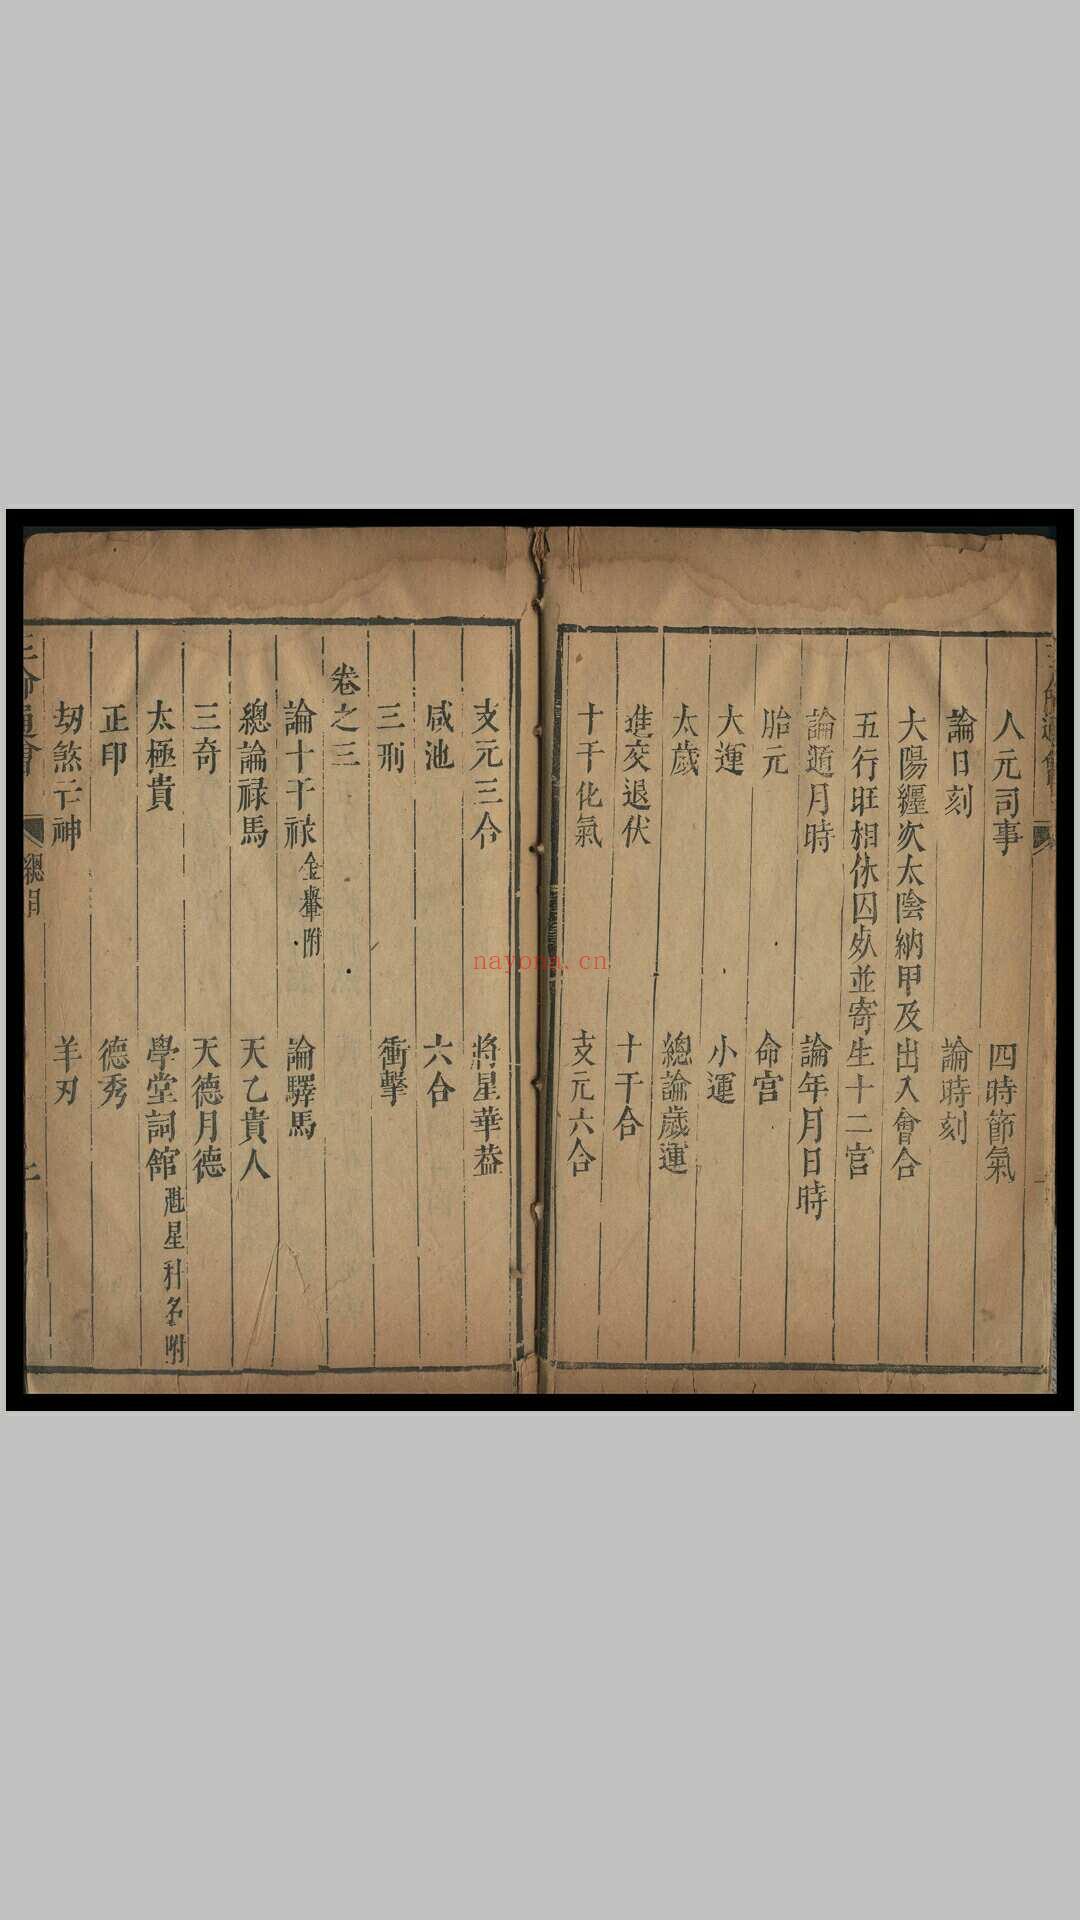 人元司事 四時節氣
論日刻 論時刻
大陽纏次太陰納甲及出入會合
五行旺相休囚處並寄生十二宫
論遁月時 論年月日時
胎元 命宫
大運 小運
太歲 總論歲運
進交退伏 十干合
十干化氣 支元六合
支元三合 將星華葢
咸池 六合
三刑 衝擊
卷之三
論十干祿金轝附 論驛馬
總論禄馬 天乙貴人
三奇 天德月德
太極貴 學堂詞館魁星科名附
正印 德秀
劫煞亡神 羊刃
三命通會 總目
nayona.cn